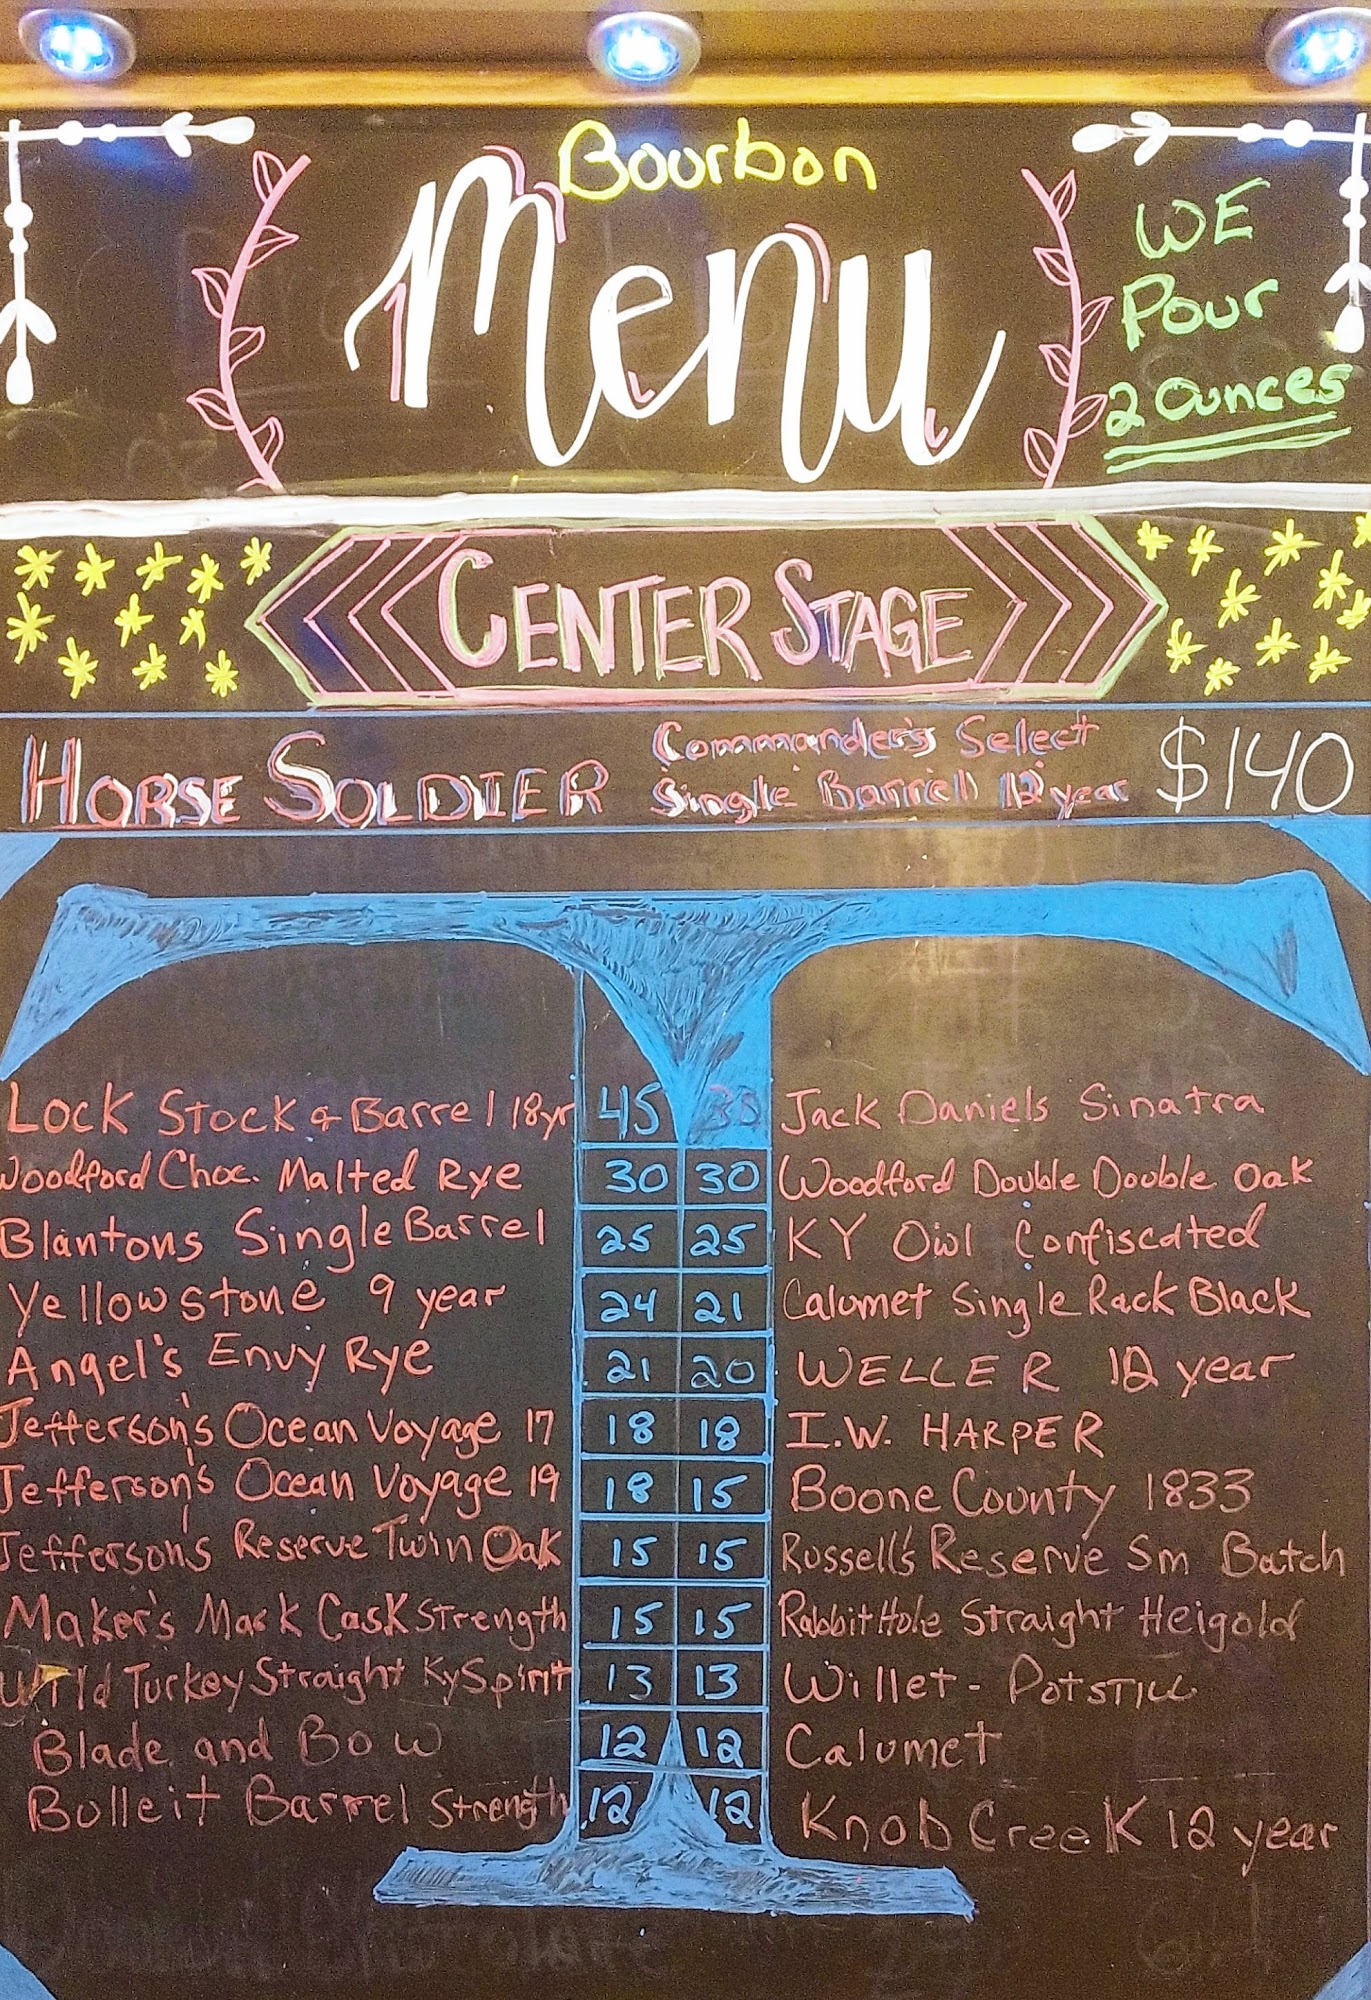 Bourbon
Menu
WE
Pour
2 Ounces
CENTER STAGE
HORSE SOLDIER Commander's Select Single Barrel 12 year $140
Lock Stock & Barrel 18yr 45 Jack Daniels Sinatra
Woodford Choc. Malted Rye 30 30 Woodford Double Double Oak
Blantons Single Barrel 25 25 KY Owl Confiscated
Yellowstone 9 year 24 21 Calumet Single Rack Black
Angel's Envy Rye 21 20 WELLER 12 year
Jefferson's Ocean Voyage 17 18 18 I.W. HARPER
Jefferson's Ocean Voyage 19 18 15 Boone County 1833
Jefferson's Reserve Twin Oak 15 15 Russell's Reserve Sm Batch
Maker's Mark Cask Strength 15 15 Rabbit Hole Straight Heigold
Wild Turkey Straight Ky Spirit 13 13 Willet - Potstill
Blade and Bow 12 12 Calumet
Bulleit Barrel Strength 12 12 Knob Creek 12 year